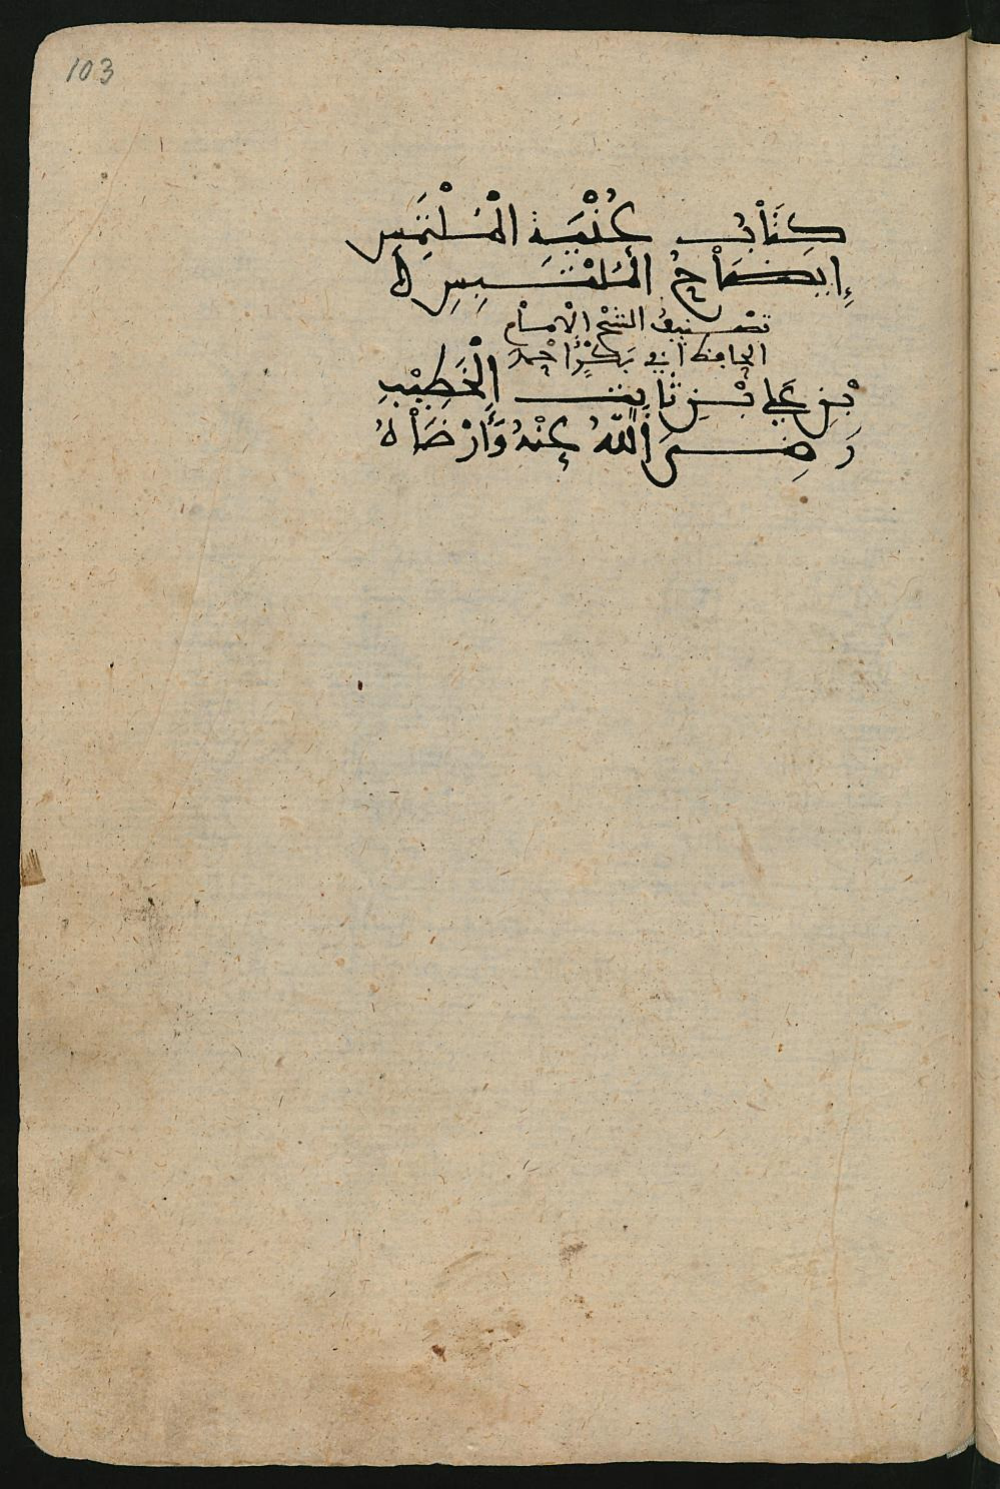 103
كِتَابُ غُنْيَةِ الْمُلْتَمِسِ
إيضَاحُ المُلْتَبِسِ
تصنيفُ الشيخ الإمام
الحافظ أبي بَكْرٍ أحمد
بْنِ عَلي بْنِ ثَابِت الْخَطِيْبِ
رَضِيَ اللَّهُ عَنْهُ وَأَرْضَاهُ